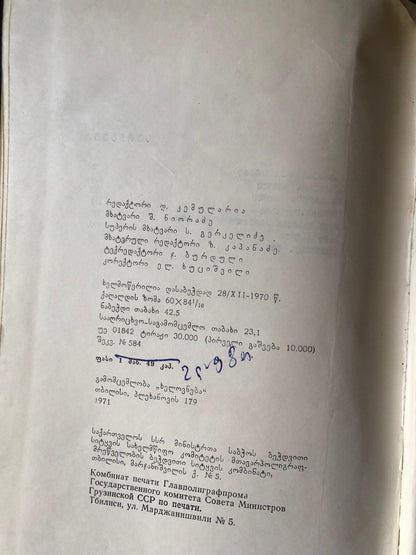 რედაქტორი დ. კემულარია
მხატვარი შ. ნიორაძე
სუპერის მხატვარი ს. გერკელიძე.
მხატვრული რედაქტორი ზ. კაპანაძე
ტექრედაქტორი ჯ. ბურდული
კორექტორი ელ. ხუციშვილი
ხელმოწერილია დასაბეჭდად 28/XII-1970 წ.
ქაღალდის ზომა 60×84¹/₁₆
ნაბეჭდი თაბახი 42.5
სააღრიცხვო-საგამომცემლო თაბახი 23,1
უე 01842 ტირაჟი 30.000 (პირველი გაშვება 10.000)
შეკვ. № 584
ფასი 1 მან. 49 კაპ.
გამომცემლობა „ხელოვნება“
თბილისი, პლეხანოვის 179
1971
საქართველოს სსრ მინისტრთა საბჭოს ბეჭდვითი
სიტყვის სახელმწიფო კომიტეტის მთავარპოლიგრაფ-
მრეწველობის ბეჭდვითი სიტყვის კომბინატი,
თბილისი, მარჯანიშვილის ქ. № 5.
Комбинат печати Главполиграфпрома
Государственного комитета Совета Министров
Грузинской ССР по печати.
Тбилиси, ул. Марджанишвили № 5.